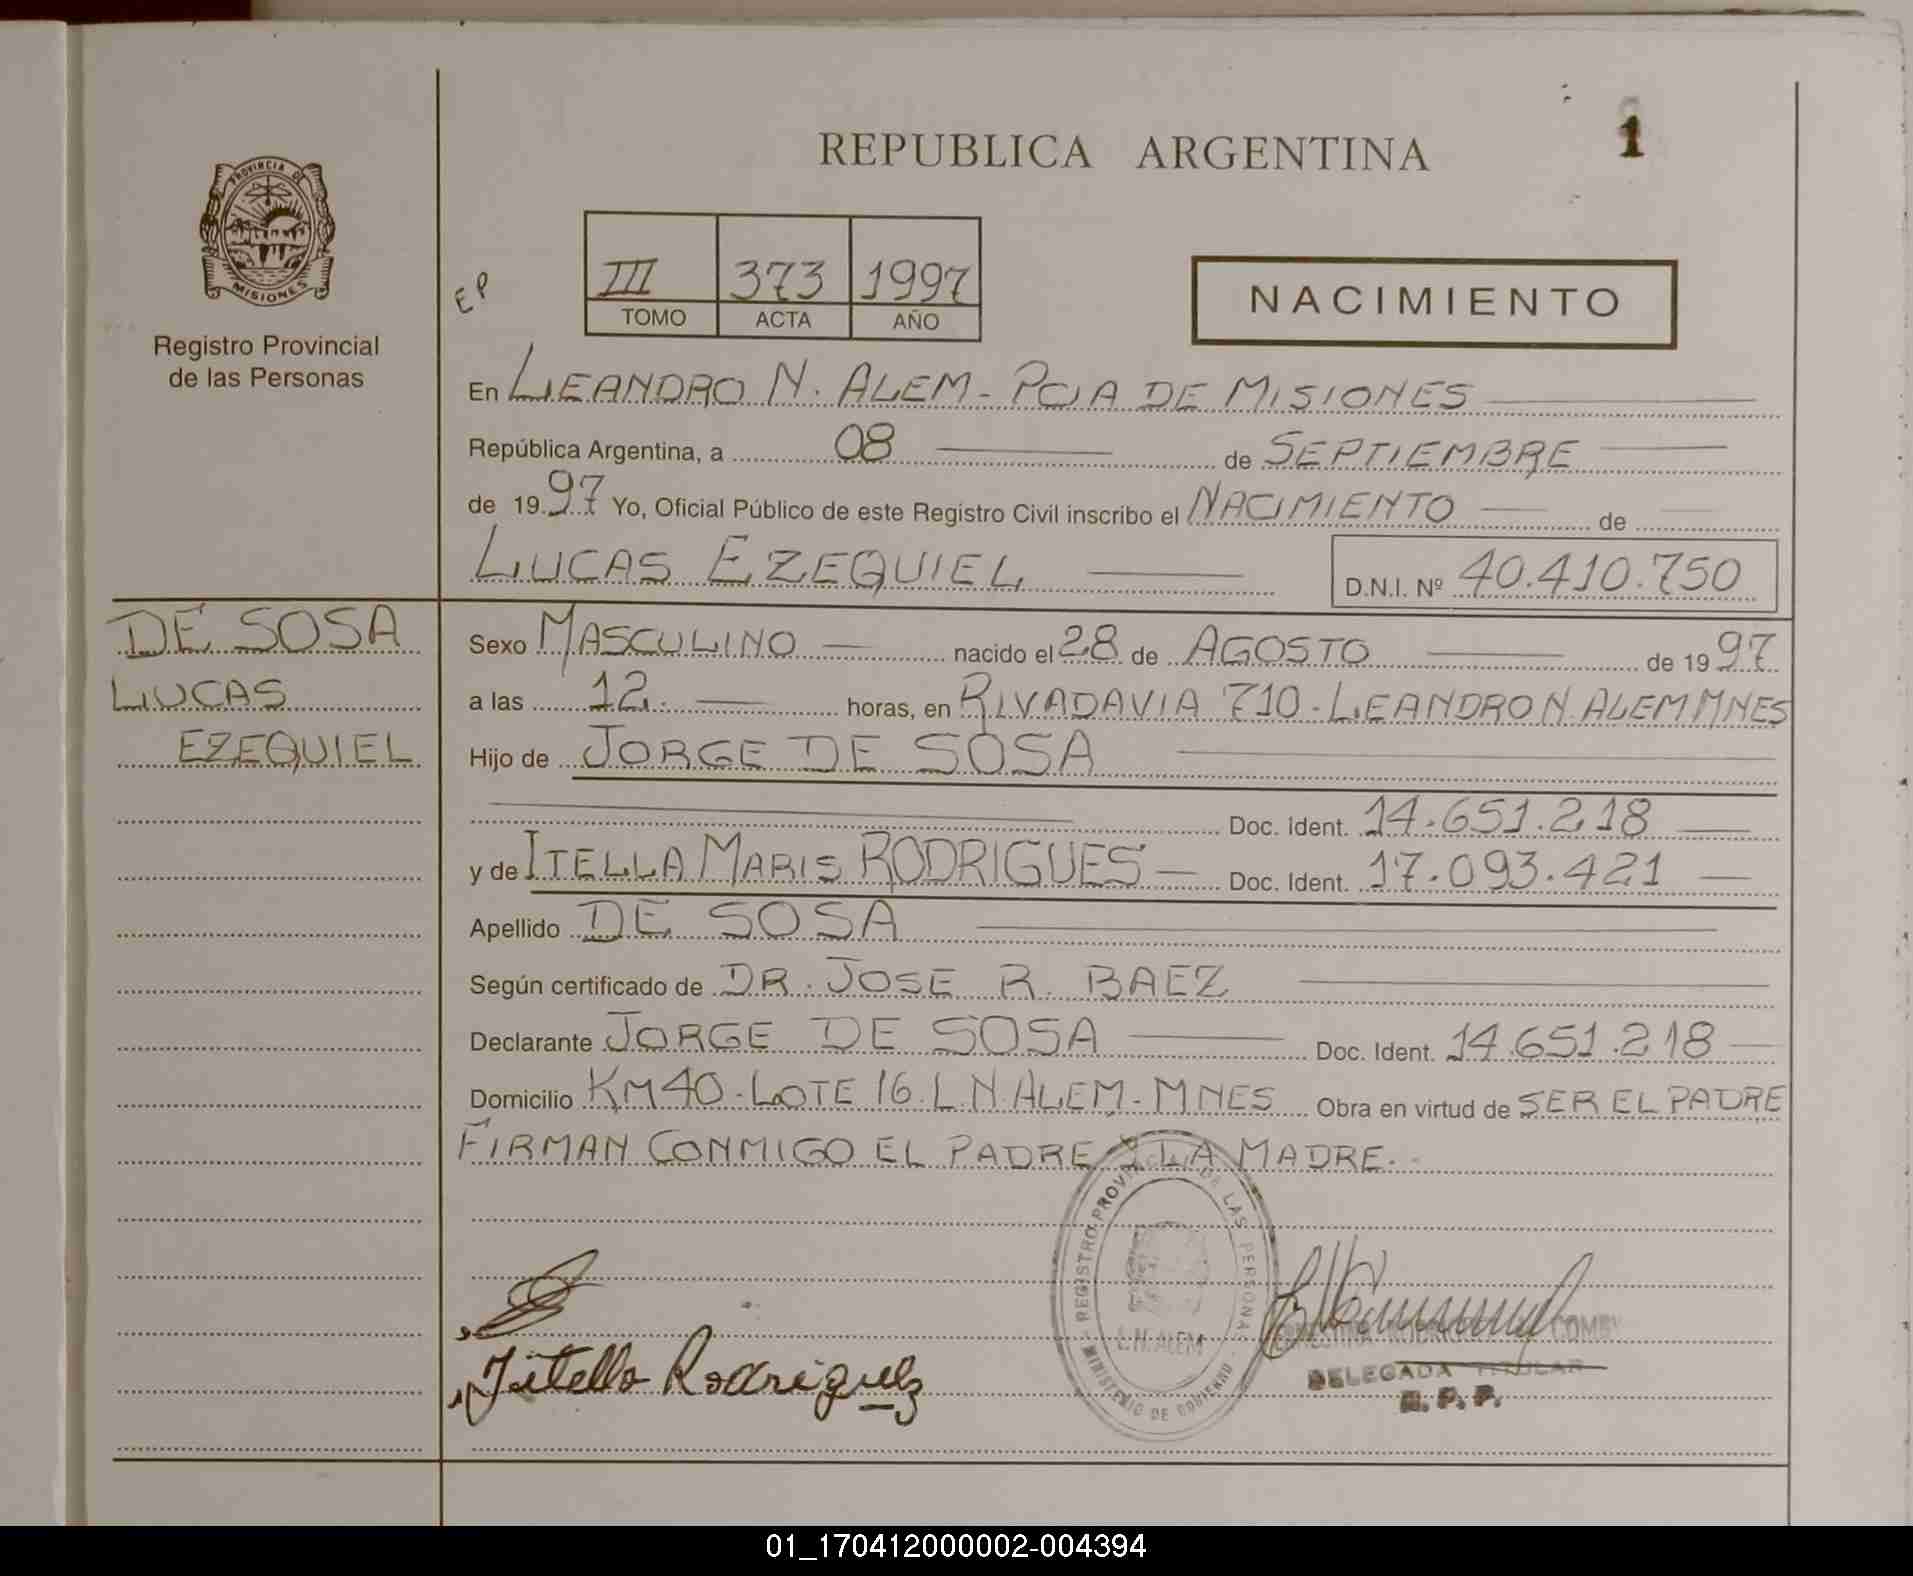 REPUBLICA ARGENTINA
1
PROVINCIA DE
MISIONES
Registro Provincial
de las Personas
EP
III 373 1997
TOMO ACTA AÑO
NACIMIENTO
En LEANDRO N. ALEM - PCIA DE MISIONES
República Argentina, a 08 de SEPTIEMBRE
de 1997 Yo, Oficial Público de este Registro Civil inscribo el NACIMIENTO de
LUCAS EZEQUIEL D.N.I. Nº 40.410.750
DE SOSA
LUCAS
EZEQUIEL
Sexo MASCULINO nacido el 28 de AGOSTO de 1997
a las 12. horas, en RIVADAVIA 710 - LEANDRO N. ALEM MNES
Hijo de JORGE DE SOSA
Doc. Ident. 14.651.218
y de ITELLA MARIS RODRIGUES Doc. Ident. 17.093.421
Apellido DE SOSA
Según certificado de DR. JOSE R. BAEZ
Declarante JORGE DE SOSA Doc. Ident. 14.651.218
Domicilio KM 40 - LOTE 16. L.N. ALEM - MNES Obra en virtud de SER EL PADRE
FIRMAN CONMIGO EL PADRE Y LA MADRE.
REGISTRO PROVINCIAL DE LAS PERSONAS
L.N. ALEM
MINISTERIO DE GOBIERNO
Rodriguez
DELEGADA TITULAR
R. P. P.
01_170412000002-004394